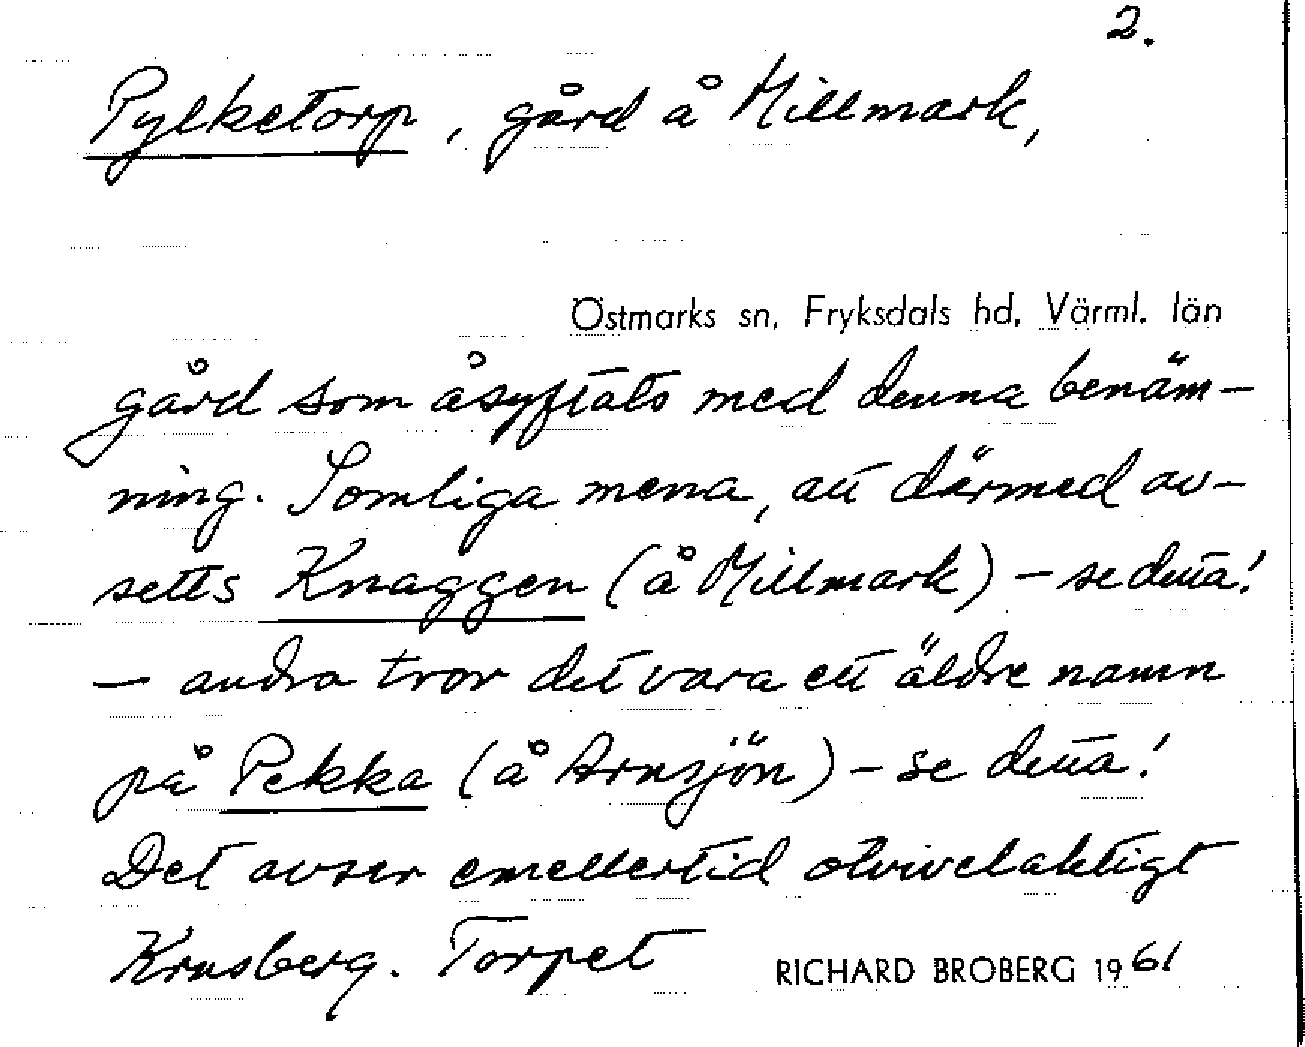 2.
Pylketorp, gård å Millmark,
Östmarks sn, Fryksdals hd, Värml. län
gård som åsyftats med denna benäm-
ning. Somliga mena, att därmed av-
setts Knaggen (å Millmark) – se detta!
– andra tror det vara ett äldre namn
på Pekka (å Arnsjön) – se detta!
Det avser emellertid otvivelaktigt
Krusberg. Torpet
RICHARD BROBERG 1961